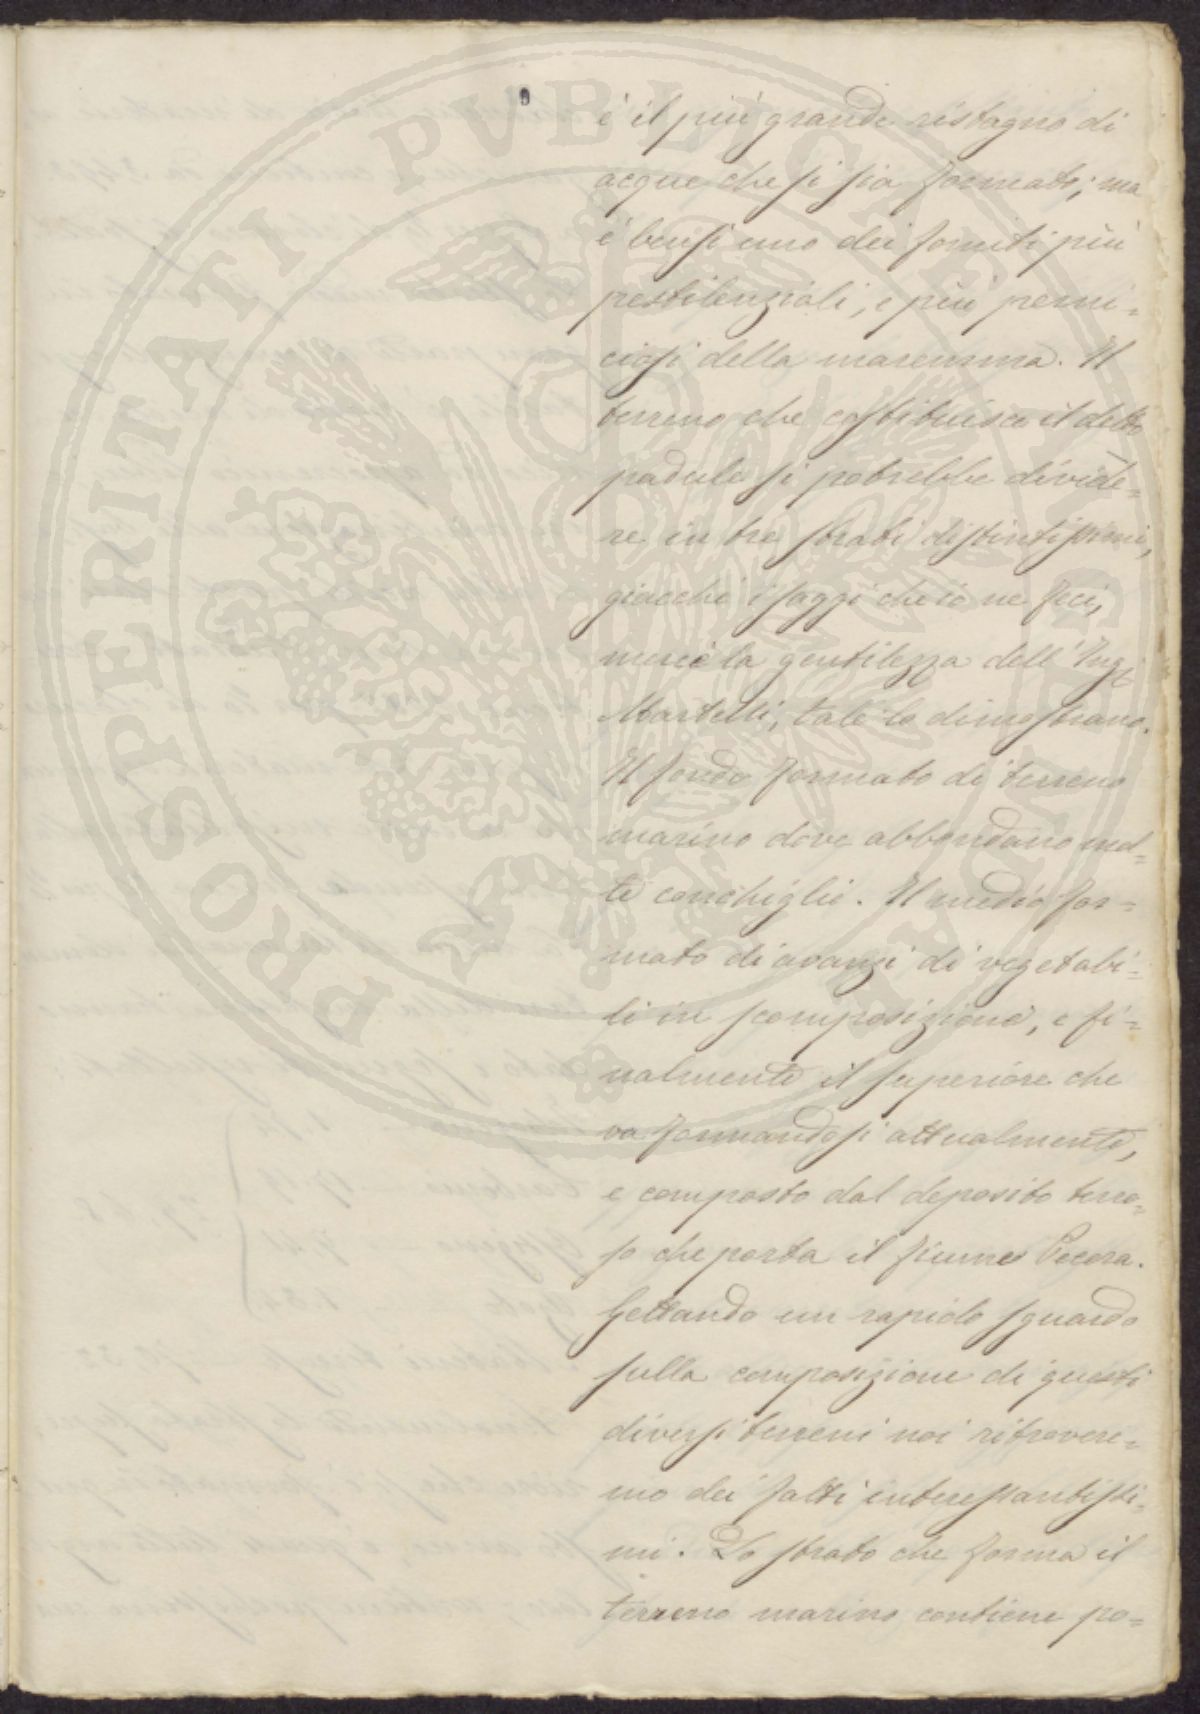 è il più grande ristagno di
acque che si sia formato; ma
è bensì uno dei fomiti più
pestilenziali, e più perni=
ciosi della maremma. Il
terreno che costituisce il detto
padule si potrebbe divide=
re in tre strati distintissimi,
giacchè i saggi che io ne feci,
mercè la gentilezza dell'Ing
Martelli, tale lo dimostrano.
Il fondo formato di terreno
marino dove abbondano mol=
te conchiglie. Il medio for=
mato di avanzi di vegetabi=
li in scomposizione, e fi=
nalmente il superiore che
va formandosi attualmente,
e composto dal deposito terro=
so che porta il fiume Pecora.
Gettando un rapido sguardo
sulla composizione di questi
diversi terreni noi ritrovere=
mo dei fatti interessantissi=
mi. Lo strato che forma il
terreno marino contiene po=
PROSPERITATI PUBLICAE AUGENDAE